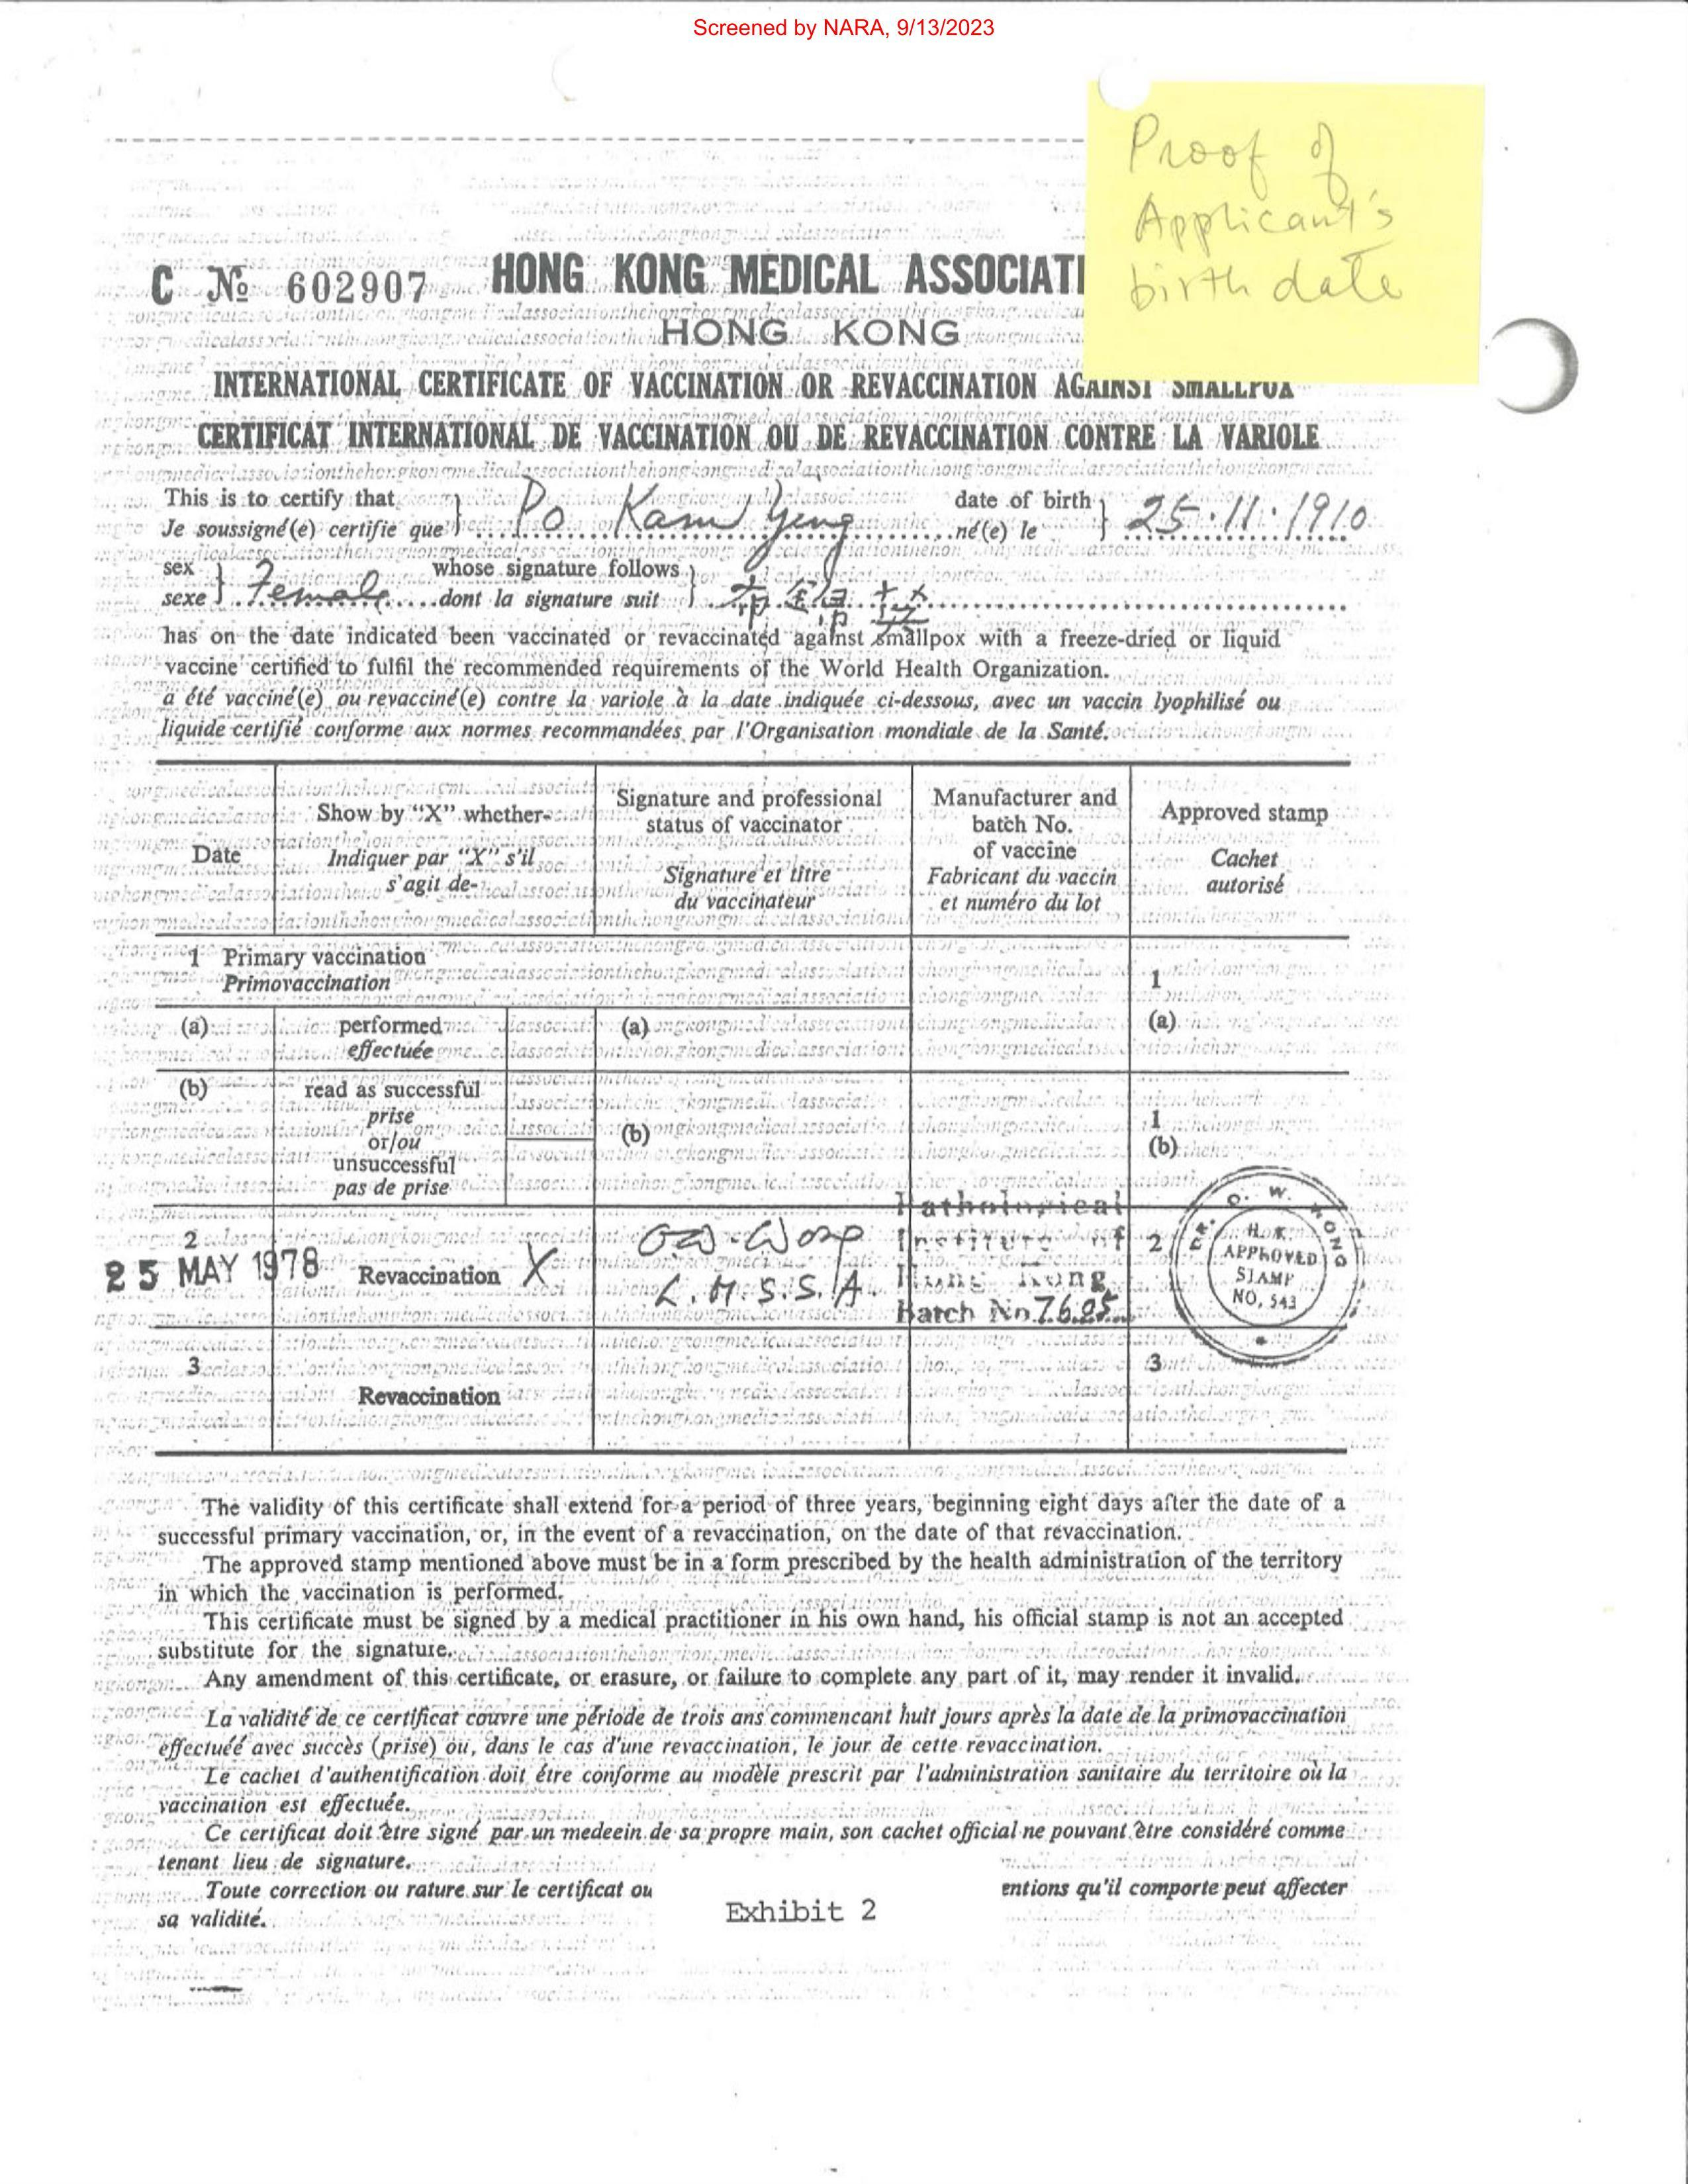 Screened by NARA, 9/13/2023
Proof of
Applicant's
birth date
C № 602907 HONG KONG MEDICAL ASSOCIATI
HONG KONG
INTERNATIONAL CERTIFICATE OF VACCINATION OR REVACCINATION AGAINST SMALLPOX
CERTIFICAT INTERNATIONAL DE VACCINATION OU DE REVACCINATION CONTRE LA VARIOLE
This is to certify that
Je soussigné(e) certifie que } Po Kam Yeng
date of birth
né(e) le } 25.11.1910
sex
sexe } Female
whose signature follows
dont la signature suit }
has on the date indicated been vaccinated or revaccinated against smallpox with a freeze-dried or liquid
vaccine certified to fulfil the recommended requirements of the World Health Organization.
a été vacciné(e) ou revacciné(e) contre la variole à la date indiquée ci-dessous, avec un vaccin lyophilisé ou
liquide certifié conforme aux normes recommandées par l'Organisation mondiale de la Santé.
Date
Show by "X" whether-
Indiquer par "X" s'il
s'agit de-
Signature and professional
status of vaccinator
Signature et titre
du vaccinateur
Manufacturer and
batch No.
of vaccine
Fabricant du vaccin
et numéro du lot
Approved stamp
Cachet
autorisé
1 Primary vaccination
Primovaccination
1
(a) performed
effectuée
(a)
(a)
(b) read as successful
prise
or/ou
unsuccessful
pas de prise
(b)
1
(b)
2
25 MAY 1978 Revaccination X
L.M.S.S.A.
Pathological
Institute of
Hong Kong
Batch No. 7625
2
DR. O. W. WONG
H.K.
APPROVED
STAMP
NO. 543
3
Revaccination
3
The validity of this certificate shall extend for a period of three years, beginning eight days after the date of a
successful primary vaccination, or, in the event of a revaccination, on the date of that revaccination.
The approved stamp mentioned above must be in a form prescribed by the health administration of the territory
in which the vaccination is performed.
This certificate must be signed by a medical practitioner in his own hand, his official stamp is not an accepted
substitute for the signature.
Any amendment of this certificate, or erasure, or failure to complete any part of it, may render it invalid.
La validité de ce certificat couvre une période de trois ans commencant huit jours après la date de la primovaccination
effectuéé avec succès (prise) ou, dans le cas d'une revaccination, le jour de cette revaccination.
Le cachet d'authentification doit étre conforme au modèle prescrit par l'administration sanitaire du territoire où la
vaccination est effectuée.
Ce certificat doit être signé par un medeein de sa propre main, son cachet official ne pouvant être considéré comme
tenant lieu de signature.
Toute correction ou rature sur le certificat ou entions qu'il comporte peut affecter
sa validité.
Exhibit 2